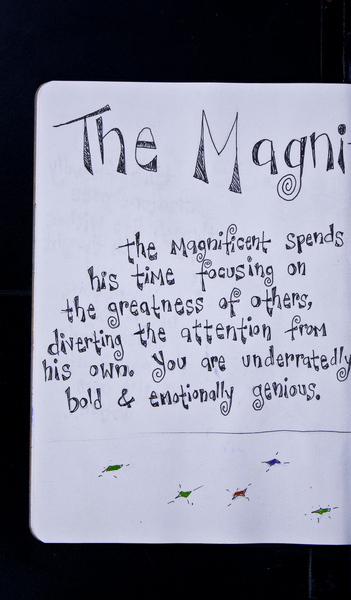 The Magni
the Magnificent spends
his time focusing on
the greatness of others,
diverting the attention from
his own. You are underratedly
bold & emotionally genious.